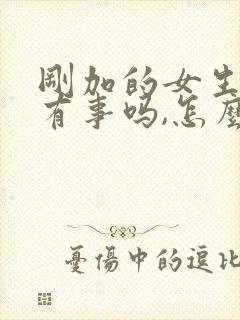 剛加的女生
有事吗,怎麼
憂傷中的逗比